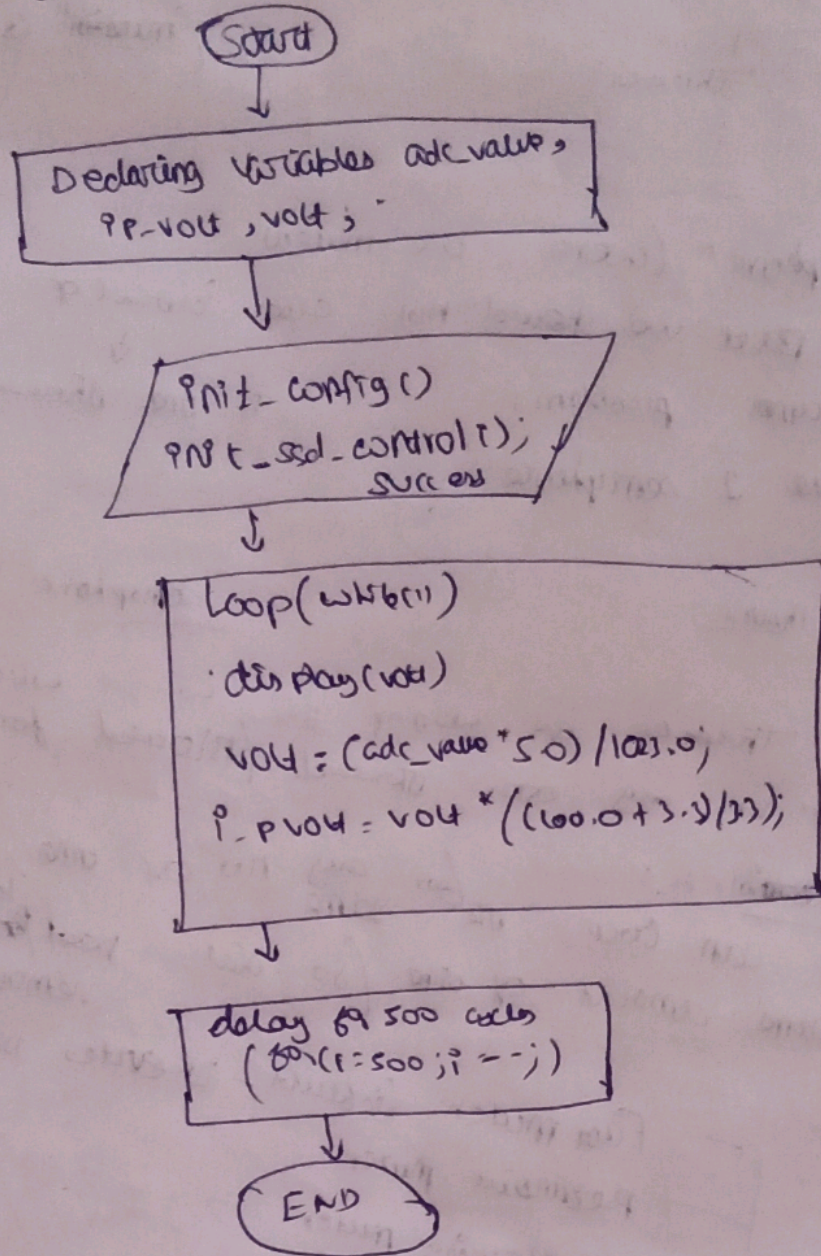 Start
Declaring variables adc_value,
ip-volt, volt;
init_config()
init_ssd_control();
success
Loop(while(1))
display(volt)
volt = (adc_value * 5.0) / 1023.0;
i-pvolt = volt * ((100.0+3.3)/3.3);
delay for 500 cycles
(for(i=500; i--;)
END